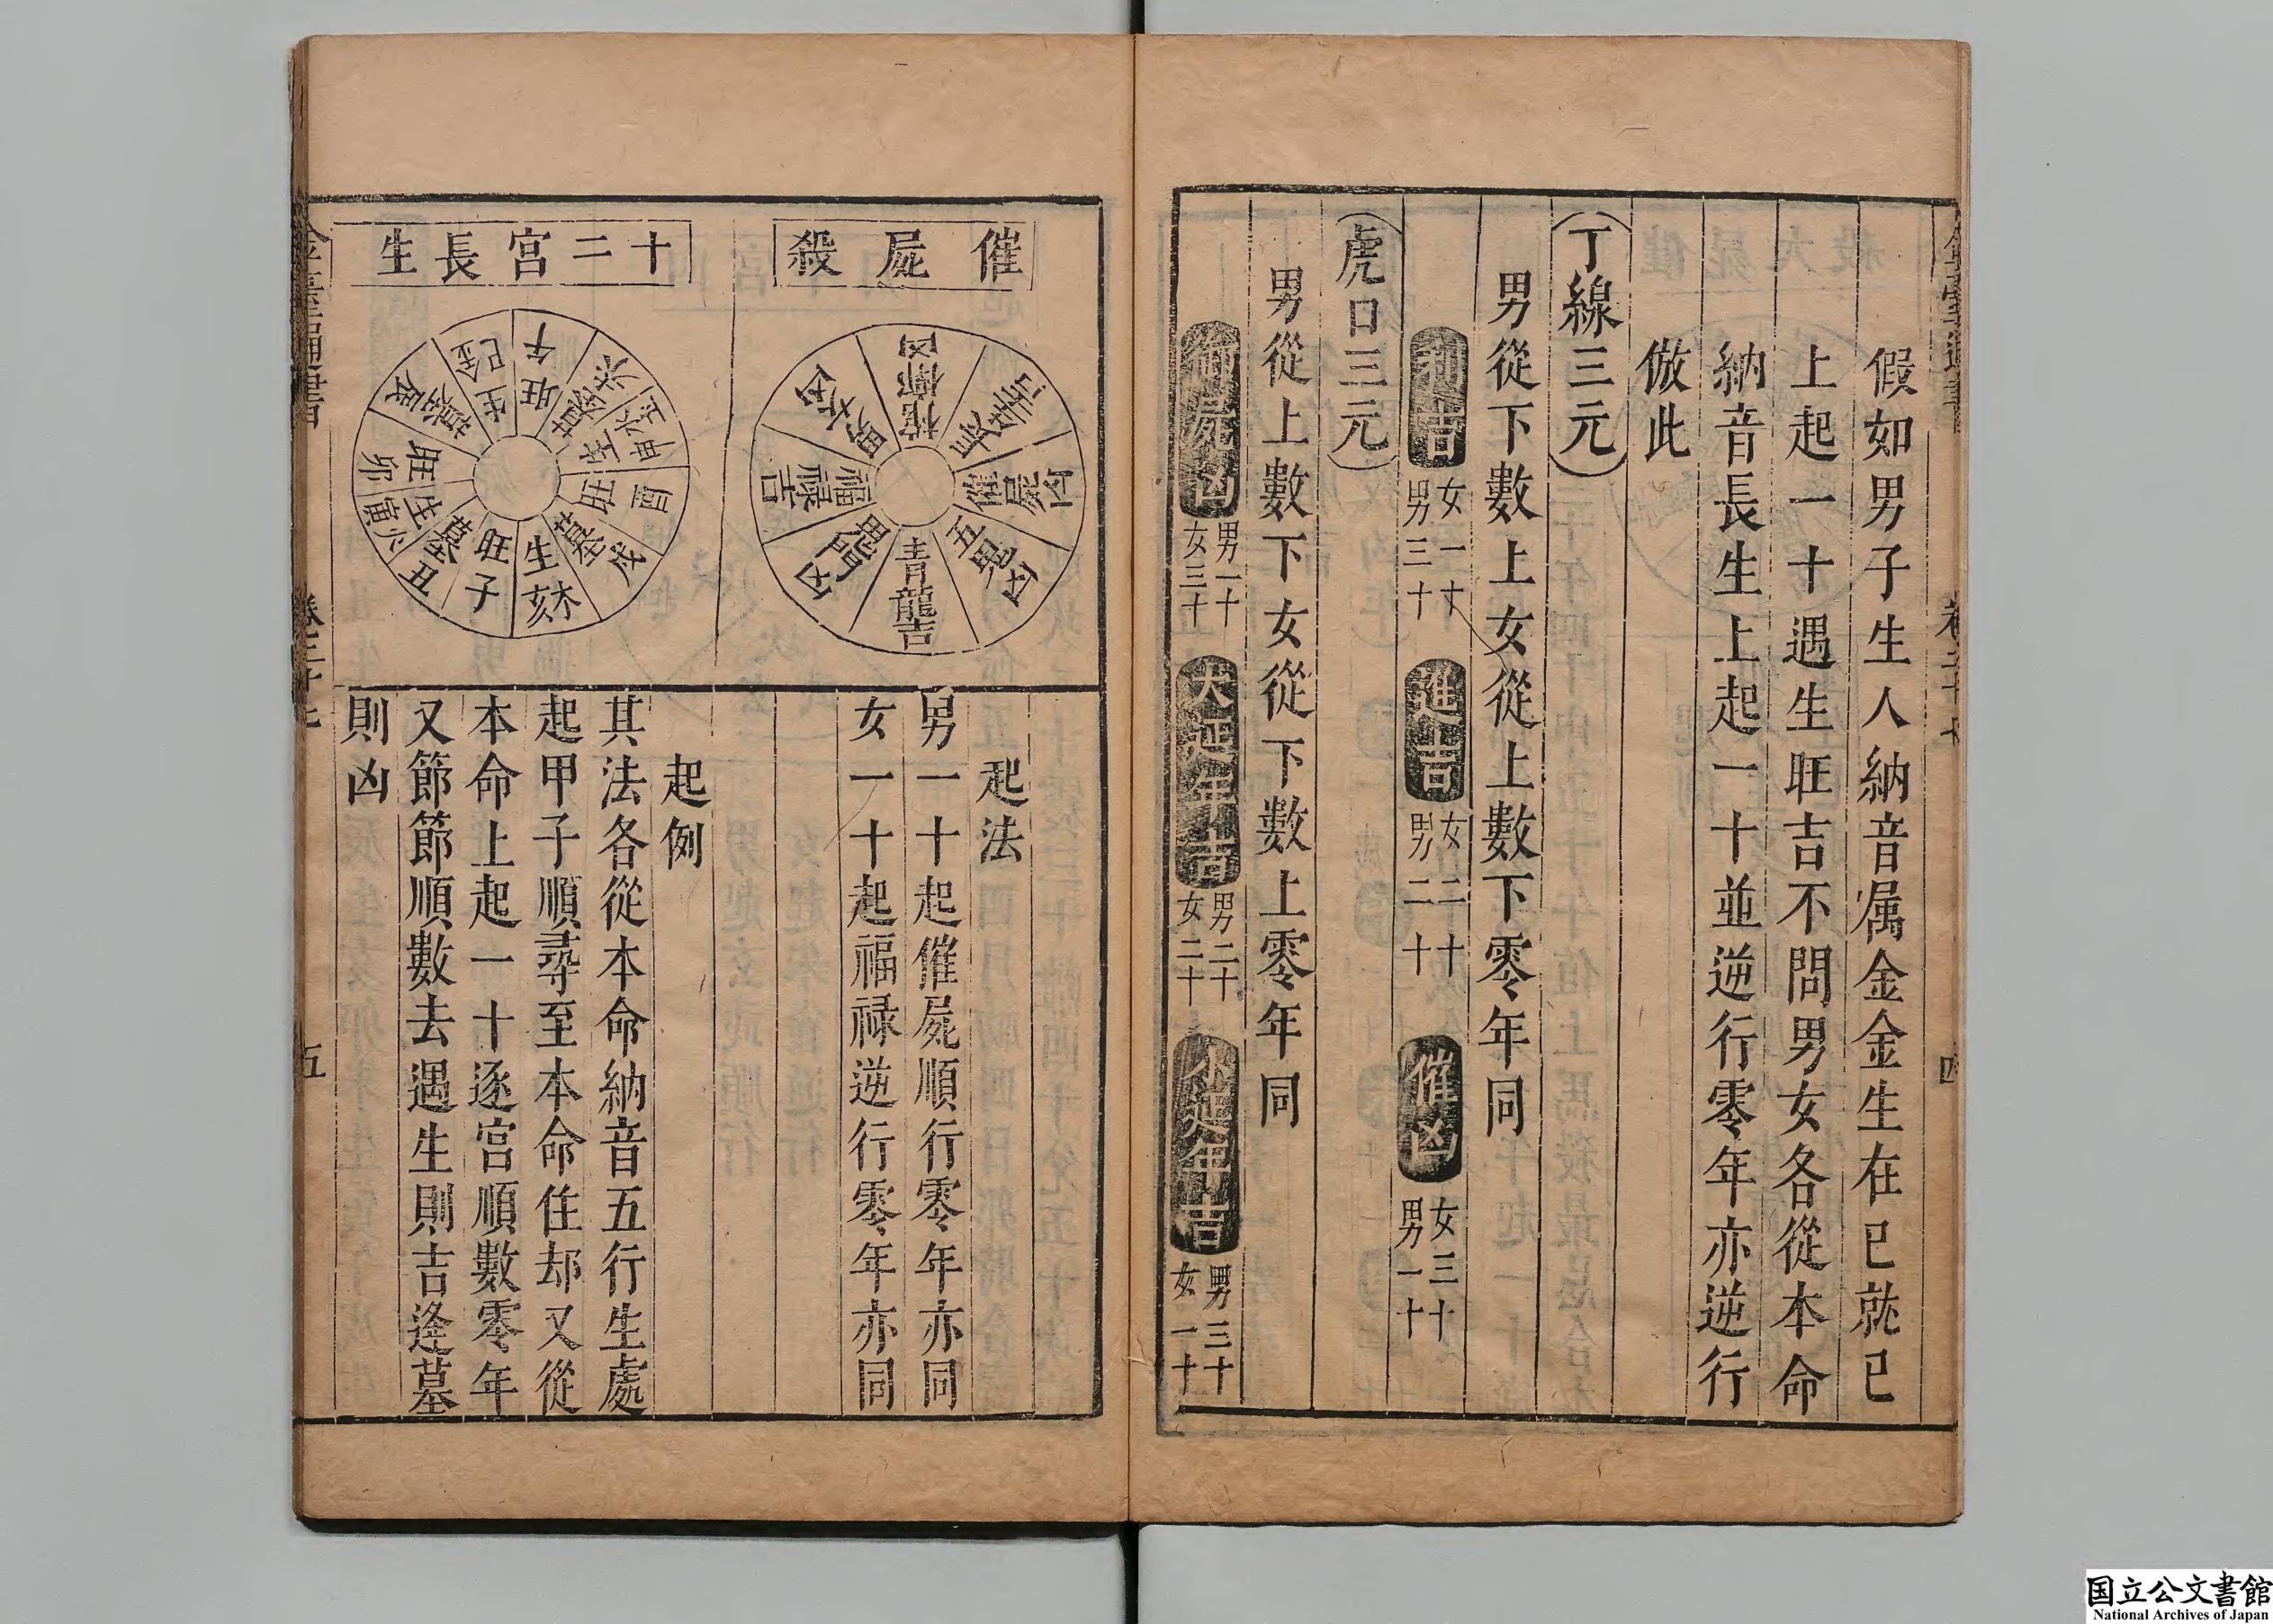 假如男子生人納音属金金生在巳就巳
上起一十遇生旺吉不問男女各從本命
納音長生上起一十並逆行零年亦逆行
倣此
丁線三元
男從下數上女從上數下零年同
初吉 女一十 男三十 進吉 女二十 男二十 催凶 女三十 男一十
虎口三元
男從上數下女從下數上零年同
衝屍凶 男一十 女三十 大延年吉 男二十 女二十 小延年吉 男三十 女一十
四
催屍殺
催屍凶
五鬼凶
青龍吉
鬼門凶
福禄吉
男
凶
起法
男一十起催屍順行零年亦同
女一十起福禄逆行零年亦同
十二宮長生
午旺
未墓
申水生
酉旺
戌墓
亥木生
子旺
丑墓
寅火生
卯旺
辰墓
巳金生
起例
其法各從本命納音五行生處
起甲子順尋至本命住却又從
本命上起一十逐宮順數零年
又節節順數去遇生則吉逢墓
則凶
五
国立公文書館
National Archives of Japan